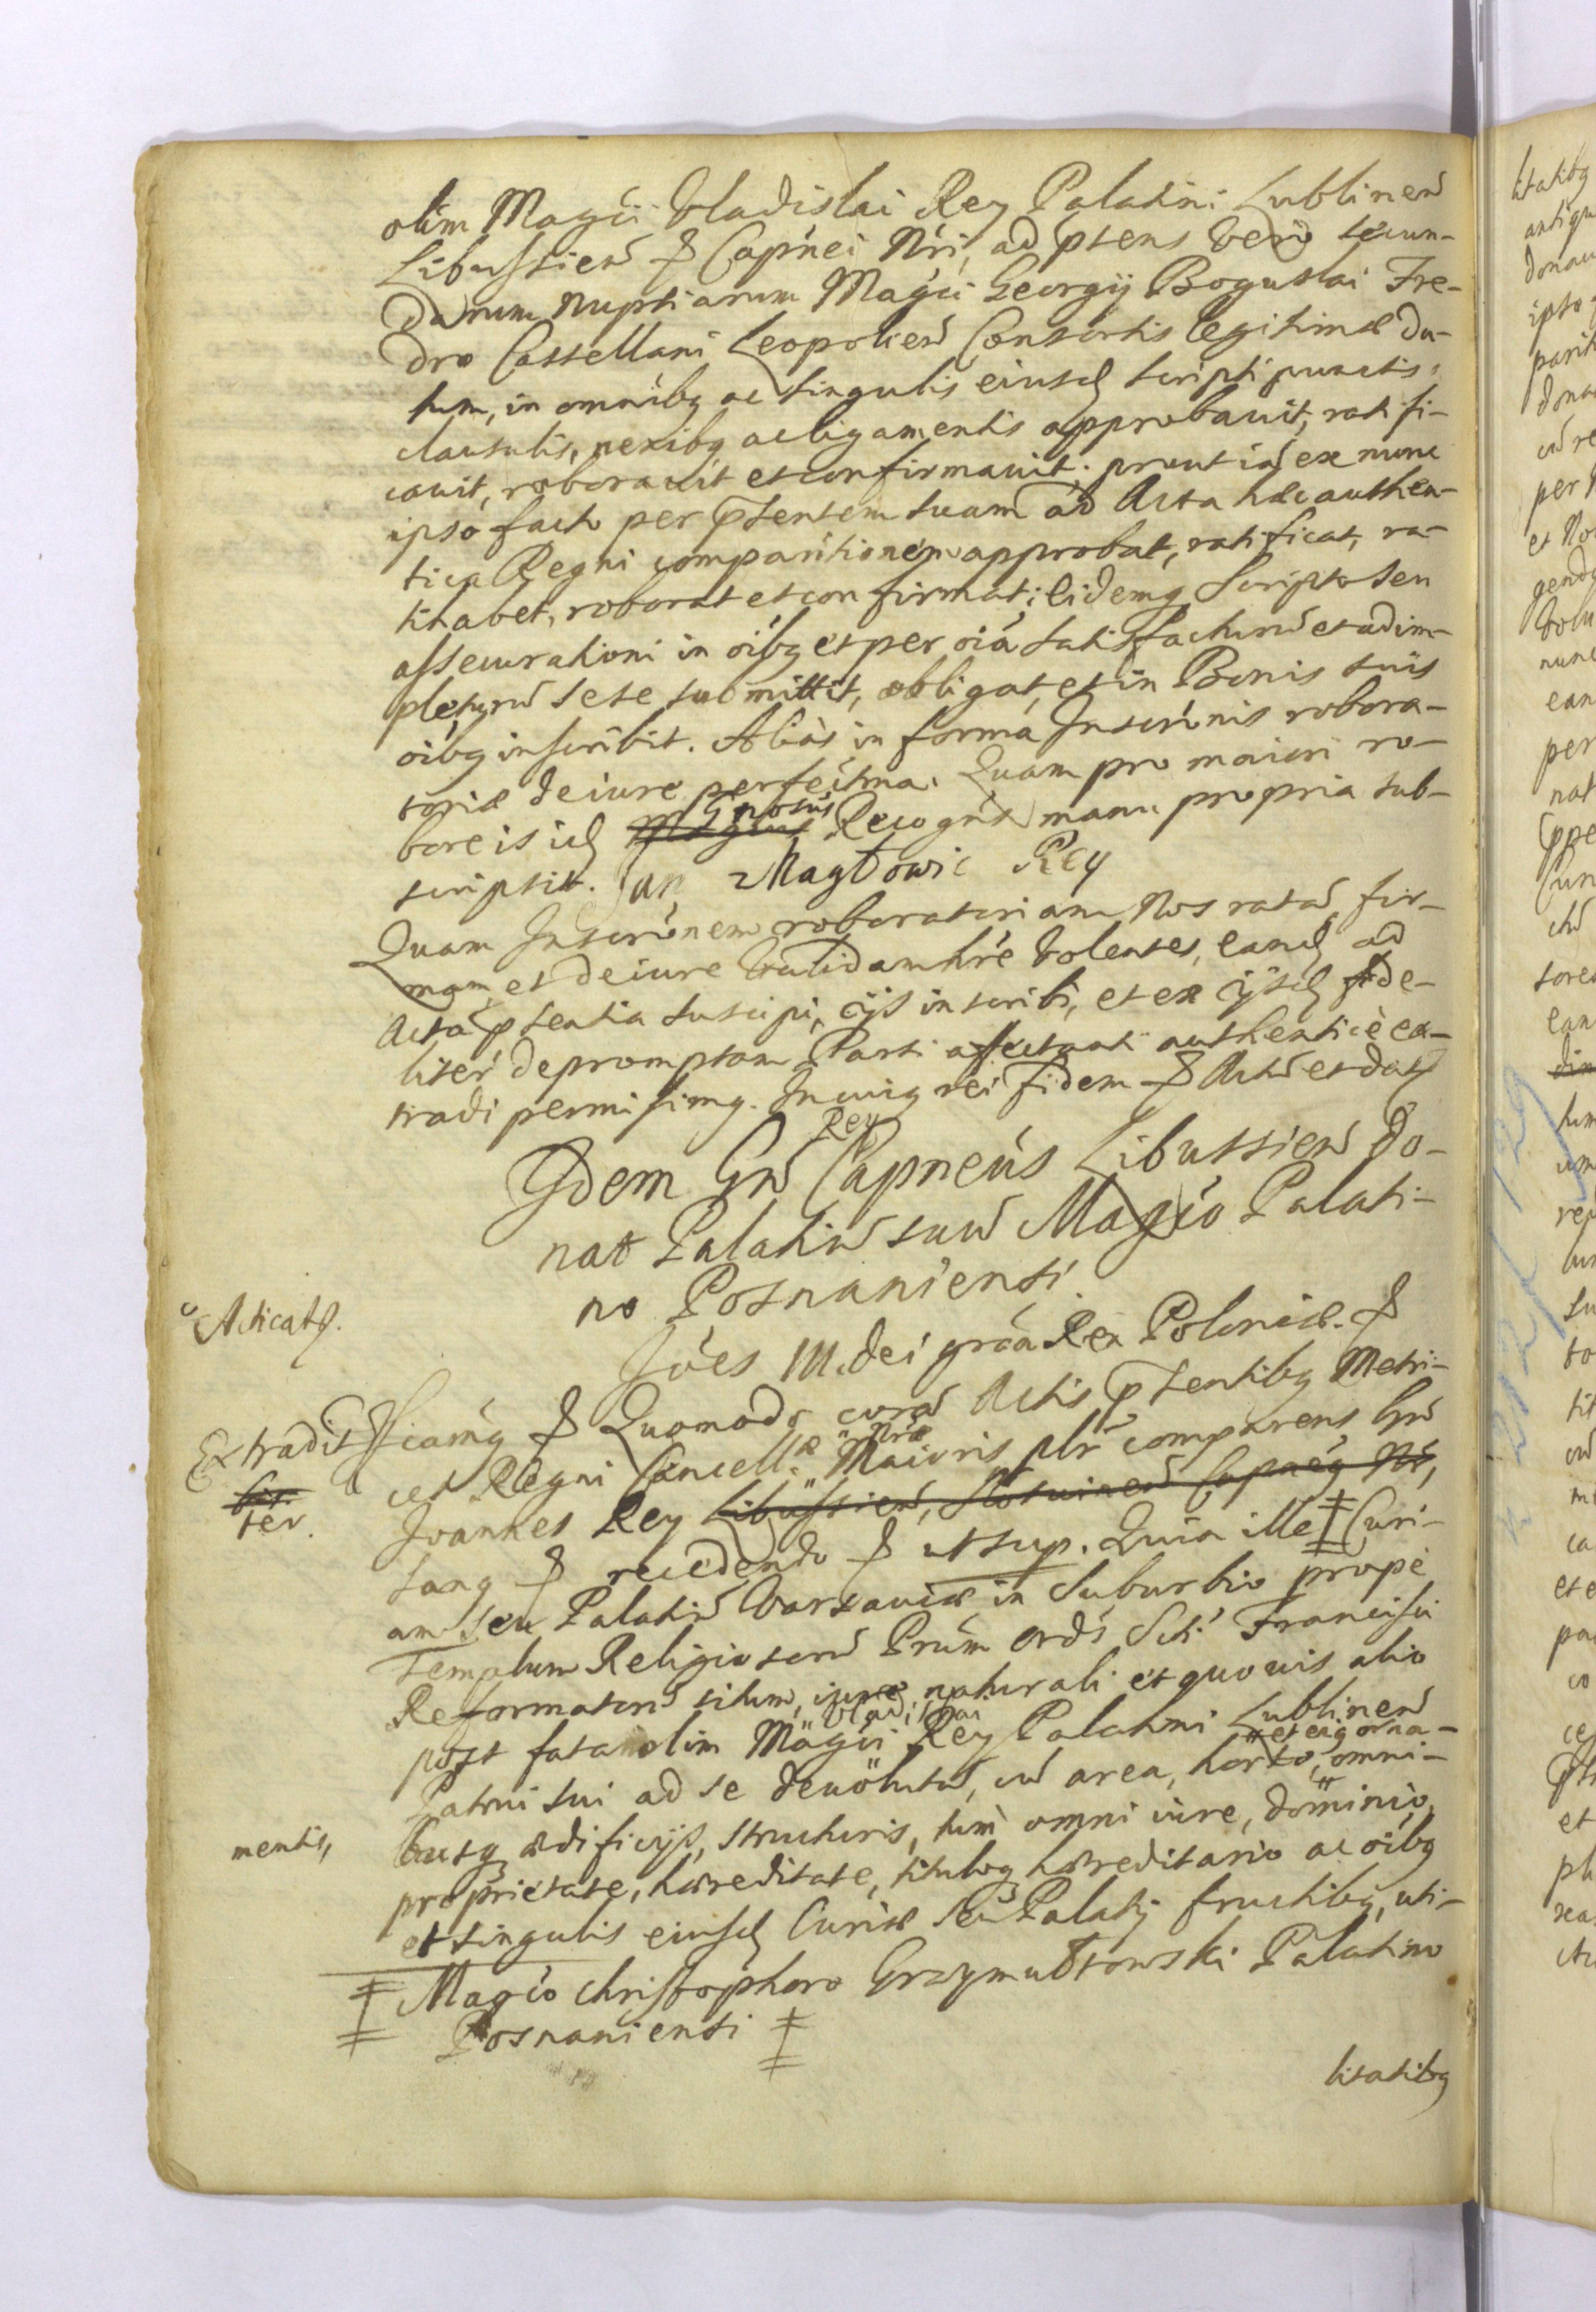 olim Magci Vladislai Rey Palatini Lublinen
Libussien & Capnei Nri, ad ptens vero secun-
darum nuptiarum Magci Georgij Boguslai Fre-
dro Castellani Leopolien Consortis legitimæ da-
tum, in omnibq ac singulis eiusd scripti punctis,
clausulis, nexibq ac ligamentis approbavit, ratifi-
cavit, roboravit et confirmavit; prout id ex nunc
ipso facto per ptentem suam ad Acta hæc authen-
tica Regni comparitionem approbat, ratificat, ra-
tihabet, roborat et confirmat; Eidemq Scripto seu
assecurationi in oibq et per oia satisfacturu et adim-
pleturu sese submittit, obligat, et in Bonis suis
oibq inscribit. Alias in forma Inscrónis robora-
toriæ de iure perfectma. Quam pro maiori ro-
bore is id Gnosus Recogns manu propria sub-
scripsit. Jan Magtowic Rey
Quam Inscrónem roboratoriam Nos rata, fir-
mam, et de iure validam hre volentes, eand ad
Acta ptentia suscipi, ijs inscribi, et ex ijsd fide-
liter depromptam Parti affectanti authenticè ex-
tradi permisimq. In cuiq rei fidem & Actu et dat
Rey
Idem Gn Capneus Libussien do-
nat Palatiu suu Magco Palati-
no Posnaniensi.
Acticat.
Jóes III. dei gróa Rex Poloniæ. &
Extradit
Sicamq & Quomodo coram Actis ptentibq Metri-
ces Regni Cancellæ Nræ Maioris plr comparens Gn
ter.
Joannes Rey Libussien, Capneq Nr,
sanq & recedendo & ut sup. Quia ille ‡ Curi-
am seu Palatiu Varsaviæ in Suburbio propè
Templum Religiosoru Prum Ords Scti Francisci
Reformatoru situm, iure naturali et quovis alio
post fata olim Magci Vladislai Rey Palatini Lublinen
Patrui sui ad se devolutu, cu area, horto, et eiq orna-
mentis,
omni-
busq ædificijs, structuris, tum omni iure, dominio,
proprietate, hæreditate, tituloq hæreditario ac oibq
et singulis eiusd Curiæ seu Palatij fructibq, uti-
‡ Magco Christophoro Grzymułtowski Palatino
Posnaniensi ‡
litatibq